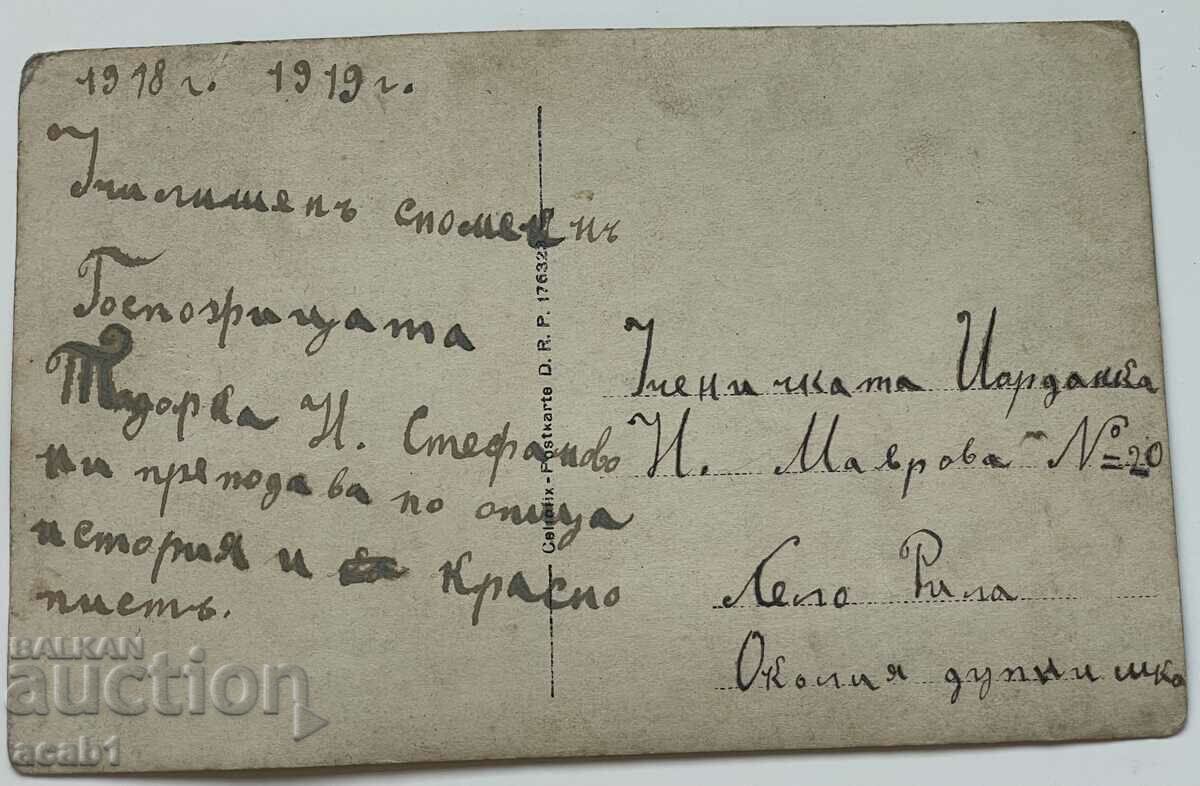 1918 г. 1919 г.
Училишенъ спомекнъ
Госпожицата
Тодорка Н. Стефаново
ни преподава по опща
история и Красно
пистъ.
Cellofix-Postkarte D. R. P. 176323
Ученичката Иорданка
Н. Маврова № 20
Село Рила
Околия дупнишка
BALKAN
auction
acab1